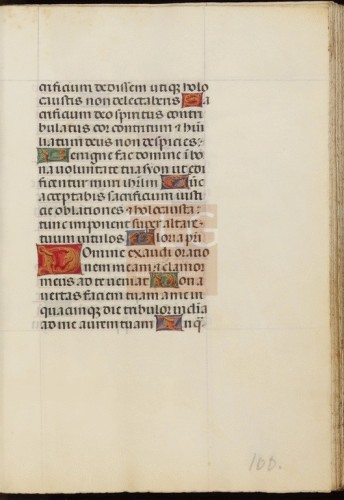 crificium dedissem utique holo
caustis non delectaberis Sa
crificium deo spiritus contri
bulatus cor contritum & humi
liatum deus non despicies:
Benigne fac domine i bo
na voluntate tua syon ut edi
ficentur muri ihrlm Tūc
acceptabis sacrificium iusti
cie oblationes & holocausta:
tunc imponent super altare
tuum vitulos Gloria pri
Domine exaudi oratio
nem meam & clamor
meus ad te veniat Non a
vertas faciem tuam a me in
quacunque die tribulor inclina
ad me aurem tuam In q
100.